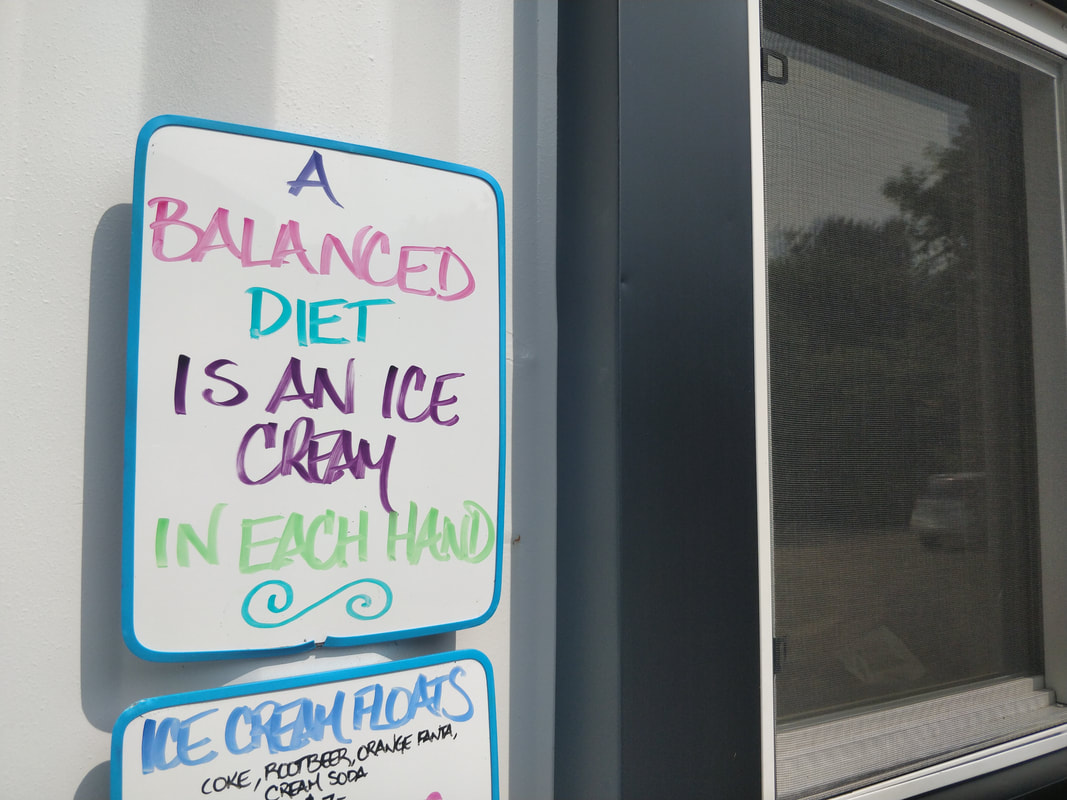 A
BALANCED
DIET
IS AN ICE
CREAM
IN EACH HAND
ICE CREAM FLOATS
COKE, ROOTBEER, ORANGE FANTA,
CREAM SODA